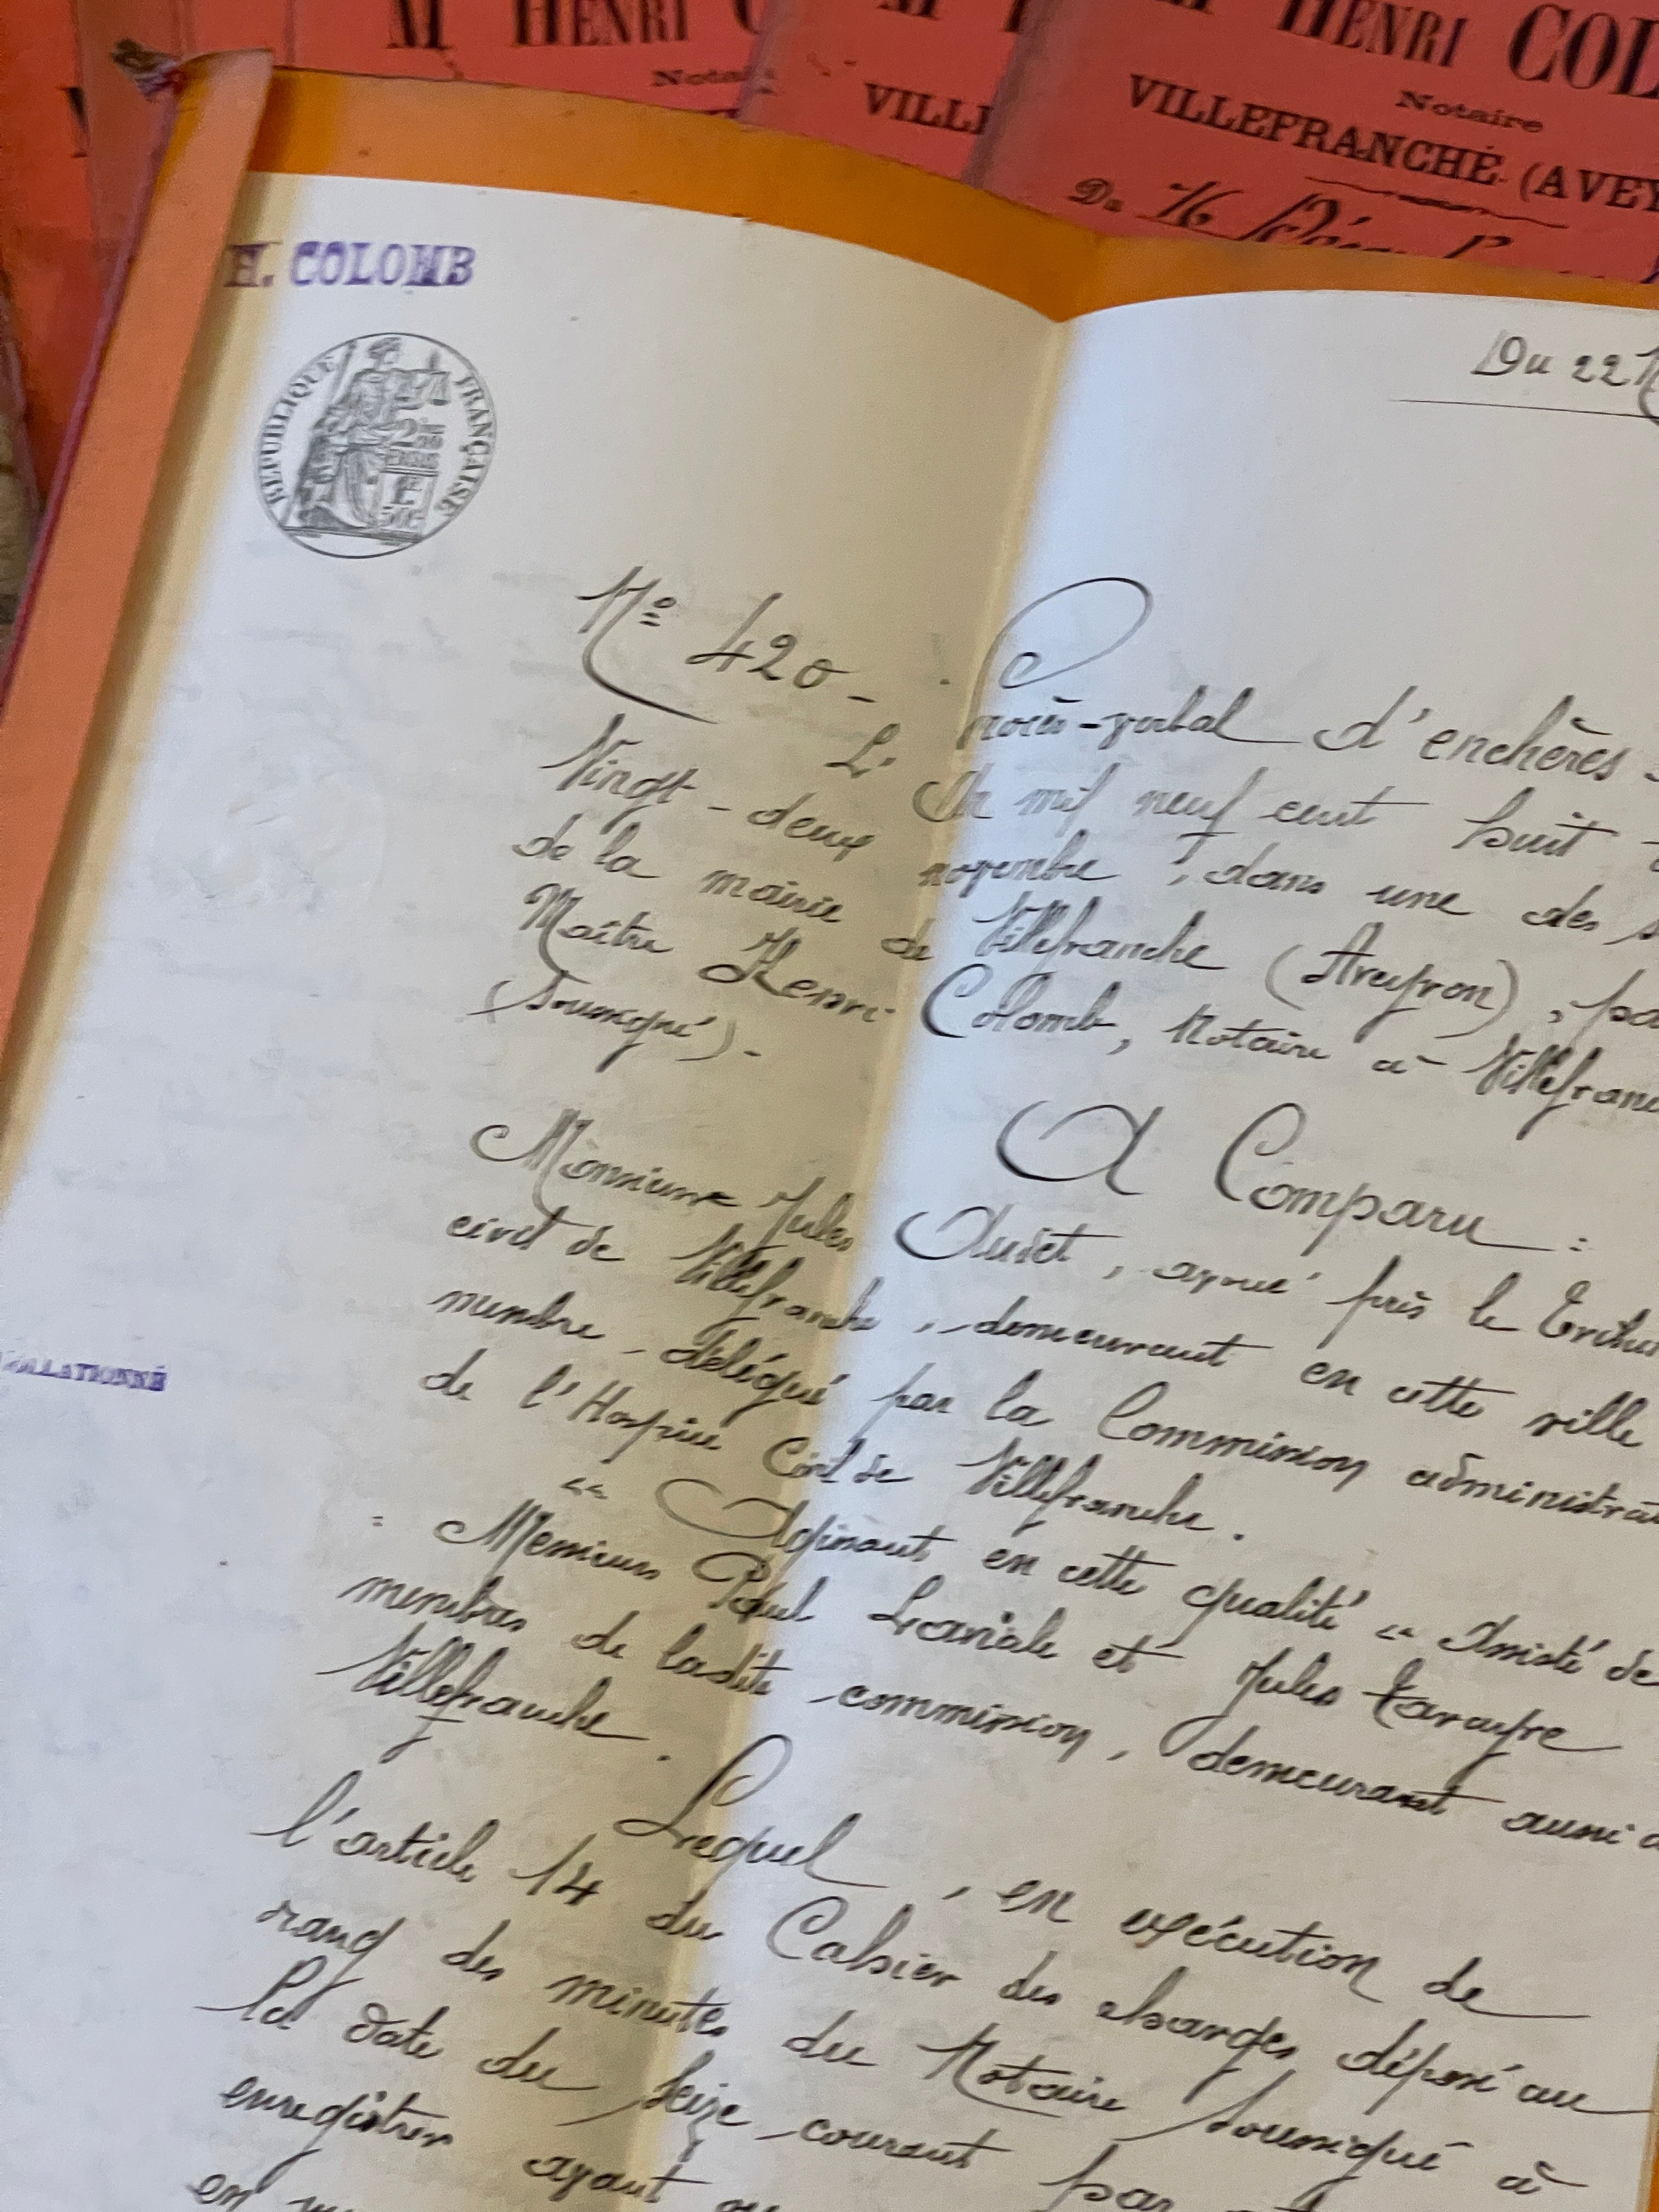 M HENRI C
Notai
VILL
HENRI COL
Notaire
VILLEFRANCHE (AVEY
Du 16
H. COLOMB
REPUBLIQUE FRANÇAISE
Du 22
No 420 -
Procès-verbal d'enchères
L'An mil neuf cent huit
Vingt-deux novembre, dans une des
de la mairie de Villefranche (Aveyron), pa
Maître Henri Colomb, Notaire à Villefran
(Soussigné) -
A Comparu :
Monsieur Jules avoué près le Tribu
civil de Villefranche, demeurant en cette ville
membre délégué par la Commission administra
de l'Hospice Civil de Villefranche.
" Agissant en cette qualité " Assisté de
= Messieurs Paul et Jules
membres de ladite commission, demeurant aussi
Villefranche.
Lequel, en exécution de
l'article 14 du Cahier des charges déposé au
rang des minutes du Notaire soussigné à
la date du seize courant
enregistrer ayant
en
COLLATIONNÉ